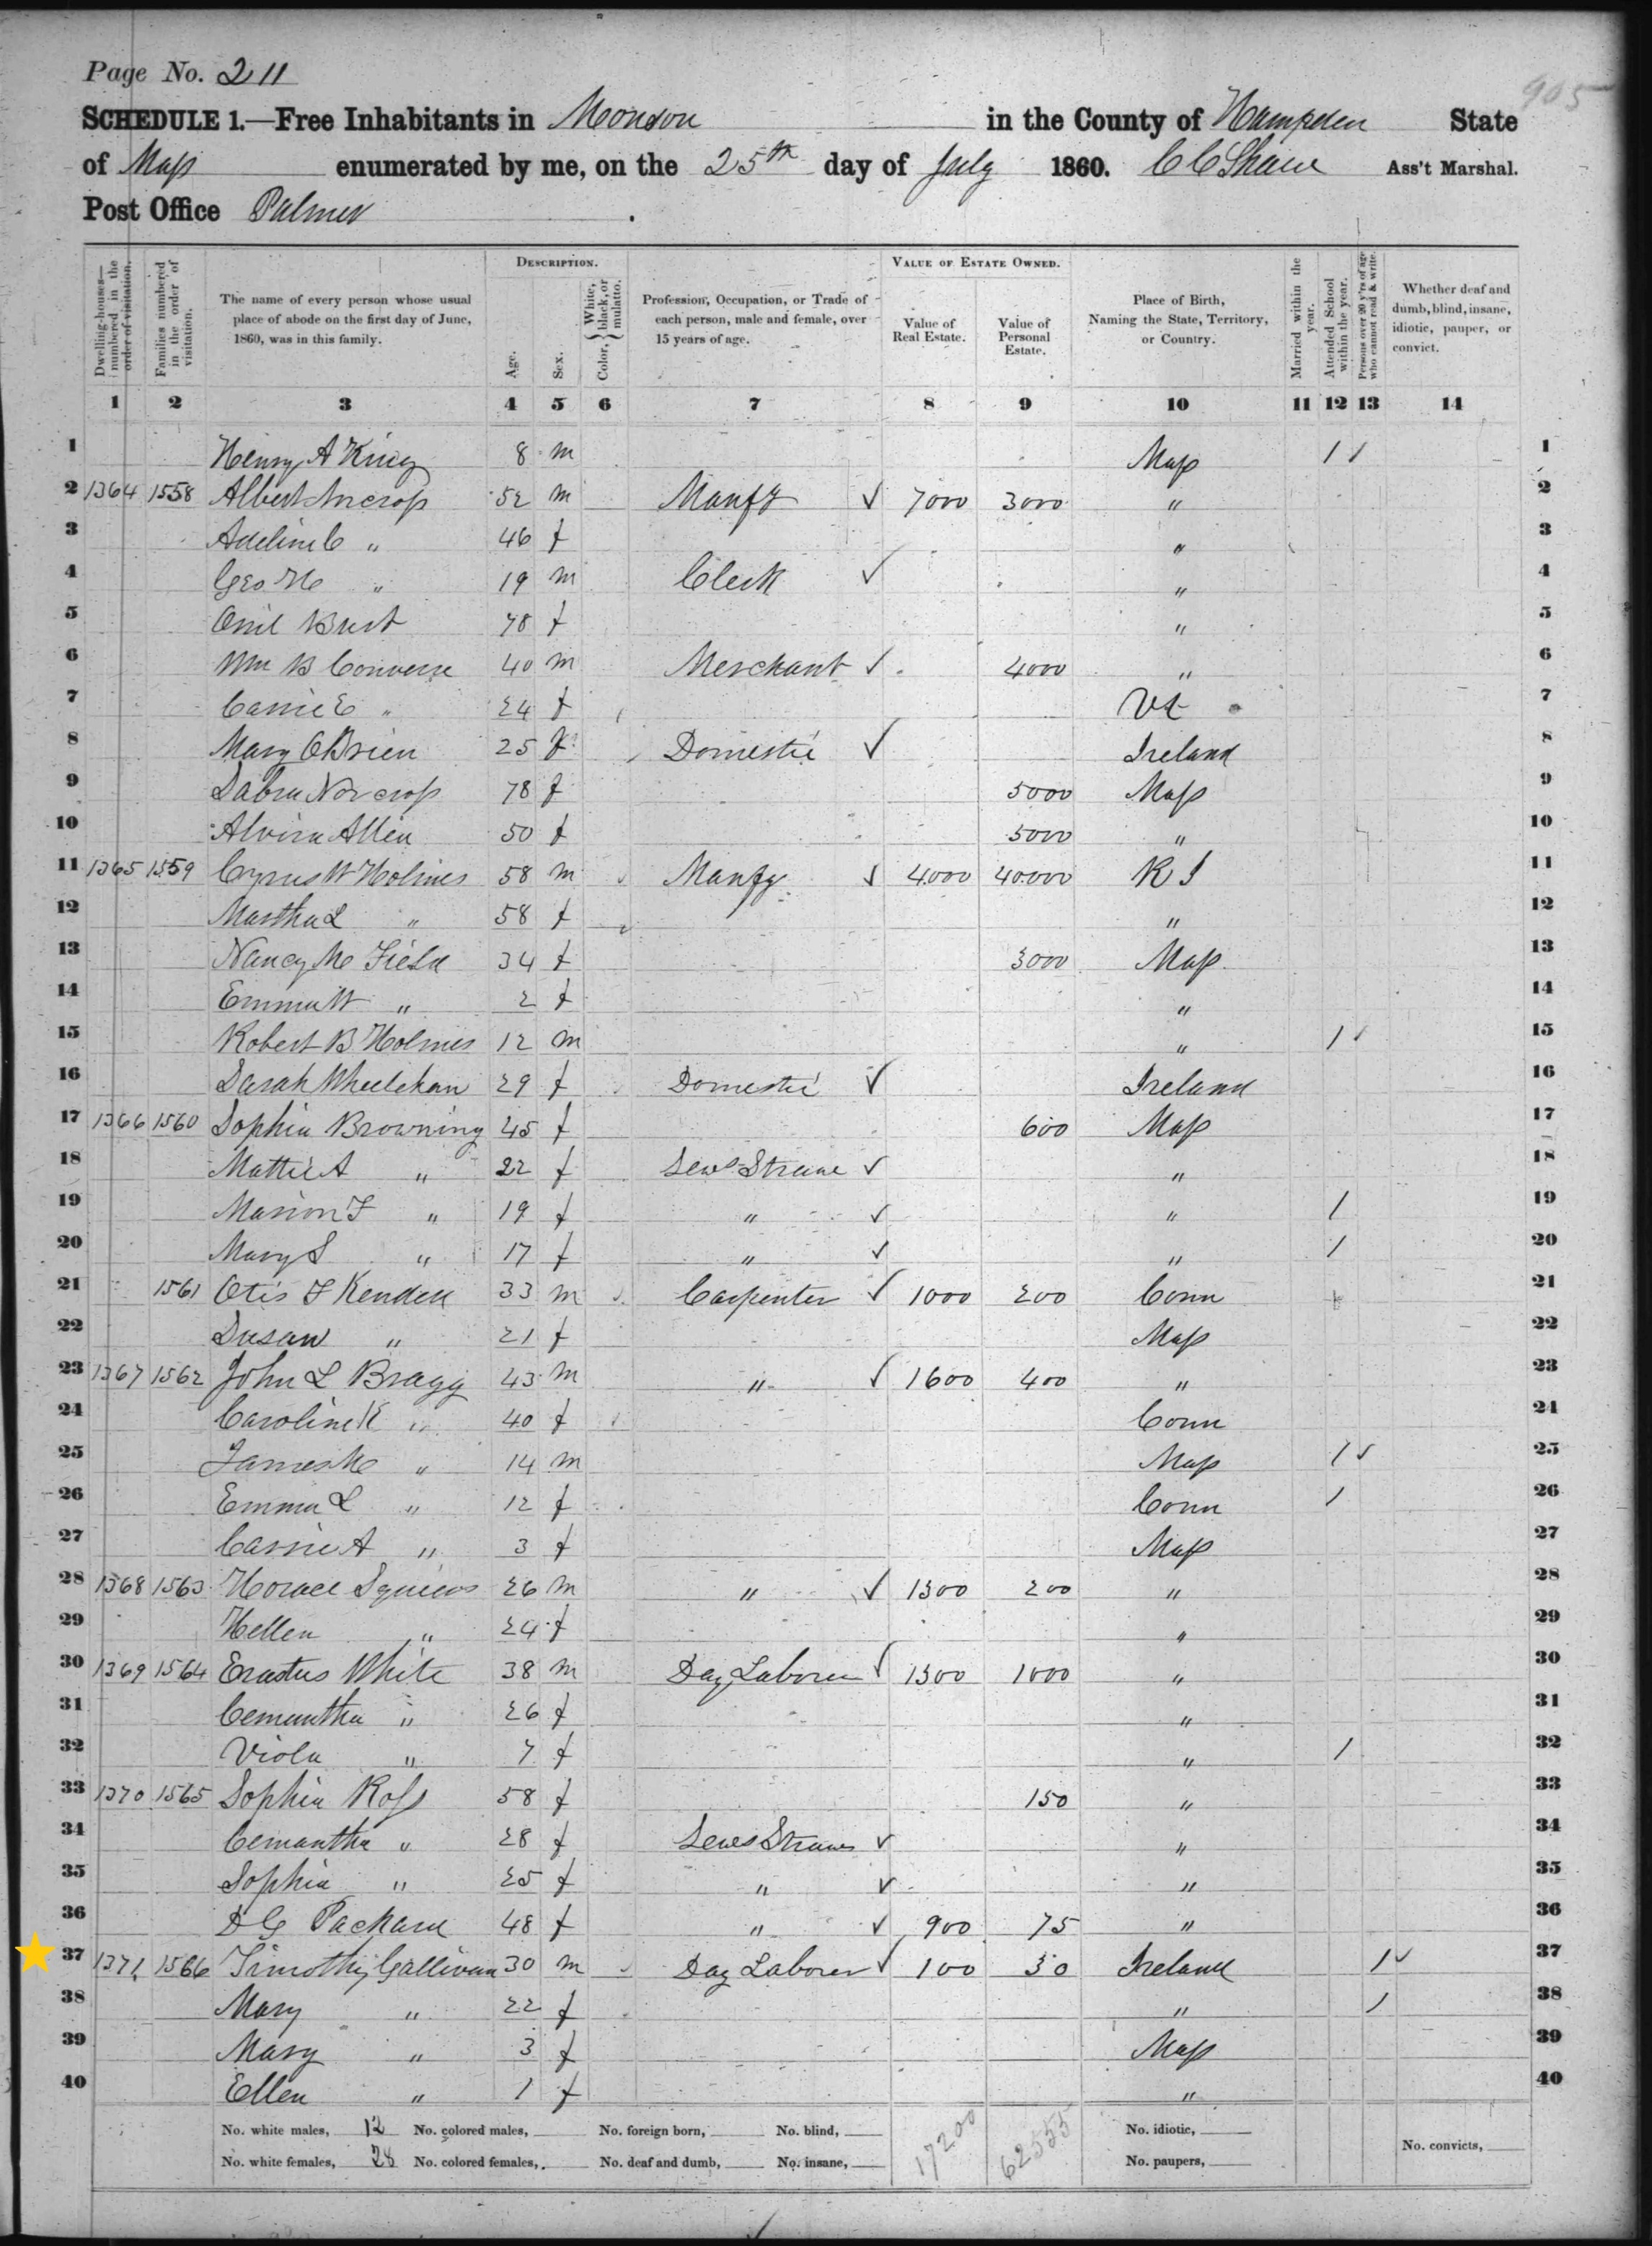 Page No. 211
905
SCHEDULE 1.—Free Inhabitants in Monson in the County of Hampden State
of Mass enumerated by me, on the 25th day of July 1860. C C Shaw Ass't Marshal.
Post Office Palmer
Dwelling-houses—numbered in the order of visitation.
Families numbered in the order of visitation.
The name of every person whose usual place of abode on the first day of June, 1860, was in this family.
DESCRIPTION.
Age.
Sex.
Color, { White, black, or mulatto.
Profession, Occupation, or Trade of each person, male and female, over 15 years of age.
VALUE OF ESTATE OWNED.
Value of Real Estate.
Value of Personal Estate.
Place of Birth, Naming the State, Territory, or Country.
Married within the year.
Attended School within the year.
Persons over 20 y'rs of age who cannot read & write.
Whether deaf and dumb, blind, insane, idiotic, pauper, or convict.
1 2 3 4 5 6 7 8 9 10 11 12 13 14
1 Henry A King 8 m Mass 1 1
2 1364 1558 Albert Norcross 52 m Manfr ✓ 7000 3000 " 2
3 Adeline C " 46 f " 3
4 Geo H " 19 m Clerk ✓ " 4
5 Burt 78 f " 5
6 Wm B Converse 40 m Merchant ✓ 4000 " 6
7 Carrie E " 24 f Vt 7
8 Mary O Brien 25 f Domestic ✓ Ireland 8
9 Sabra Norcross 78 f 5000 Mass 9
10 Alvira Allen 50 f 5000 " 10
11 1365 1559 Cyrus W Holmes 58 m Manfr ✓ 4000 40000 R I 11
12 Martha L " 58 f " 12
13 Nancy M Field 34 f 3000 Mass 13
14 Emma W " 2 f " 14
15 Robert B Holmes 12 m " 1 15
16 Sarah Wheelehan 29 f Domestic ✓ Ireland 16
17 1366 1560 Sophia Browning 45 f 600 Mass 17
18 Mattie A " 22 f Sews Straw ✓ " 18
19 Marion F " 19 f " ✓ " 1 19
20 Mary S " 17 f " ✓ " 1 20
21 1561 Otis F Kendell 33 m Carpenter ✓ 1000 200 Conn 21
22 Susan " 21 f Mass 22
23 1367 1562 John L Bragg 43 m " ✓ 1600 400 " 23
24 Caroline K " 40 f Conn 24
25 James M " 14 m Mass 1 25
26 Emma L " 12 f Conn 1 26
27 Carrie A " 3 f Mass 27
28 1368 1563 Horace Squiers 26 m " ✓ 1300 200 " 28
29 Hellen " 24 f " 29
30 1369 1564 Erastus White 38 m Day Laborer ✓ 1300 1000 " 30
31 Cemantha " 26 f " 31
32 Viola " 7 f " 1 32
33 1370 1565 Sophia Ross 58 f 150 " 33
34 Cemantha " 28 f Sews Straw ✓ " 34
35 Sophia " 25 f " ✓ " 35
36 D G Packard 48 f " ✓ 900 75 " 36
37 1371 1566 Timothy Gallivan 30 m Day Laborer ✓ 100 30 Ireland 1 ✓ 37
38 Mary " 22 f " 1 38
39 Mary " 3 f Mass 39
40 Ellen " 1 f " 40
No. white males, 12 No. colored males, No. foreign born, No. blind, 17200 62555 No. idiotic, No. convicts,
No. white females, 28 No. colored females, No. deaf and dumb, No. insane, No. paupers,